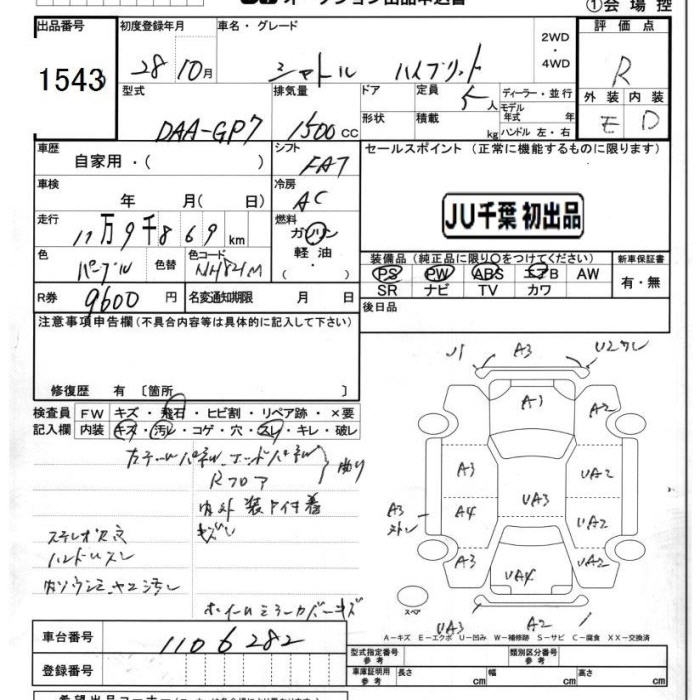 オークション出品申込書
①会場控
出品番号
1543
初度登録年月
28 10月
車名・グレード
シャトル ハイブリッド
2WD
・
4WD
評価点
R
外装 内装
E D
型式
DAA-GP7
排気量
1500 cc
ドア
形状
定員
5人
積載
kg
ディーラー・並行
モデル年式 年
ハンドル 左・右
車歴
自家用・( )
シフト
FAT
セールスポイント (正常に機能するものに限ります)
JU千葉 初出品
車検
年 月( 日)
冷房
AC
走行
11万9千869 km
燃料
ガソリン
軽油・
( ・ )
色
パープル
色替
色コード
NH821M
装備品 (純正品に限り○をつけてください)
PS PW ABS エアB AW
SR ナビ TV カワ
新車保証書
有・無
R券
9600 円
名変通知期限 月 日
後日品
注意事項申告欄 (不具合内容等は具体的に記入して下さい)
修復歴 有 〔箇所 〕
検査員
記入欄
FW キズ・飛石・ヒビ割・リペア跡・×要
内装 キズ・汚レ・コゲ・穴・スレ・キレ・破レ
Rフロア
内外装 タイ付着
キズ
ハンドルスレ
ホイールミラーカバーキズ
A3
A1
A2
A3
UA2
A3
A4
UA3
UA2
A3
UA4
UA2
UA3
A2
スペア
A-キズ E-エクボ U-凹み W-補修跡 S-サビ C-腐食 XX-交換済
車台番号
1106282
登録番号
型式指定番号
参考
類別区分番号
参考
車庫証明用
参考
長さ cm
幅 cm
高さ cm